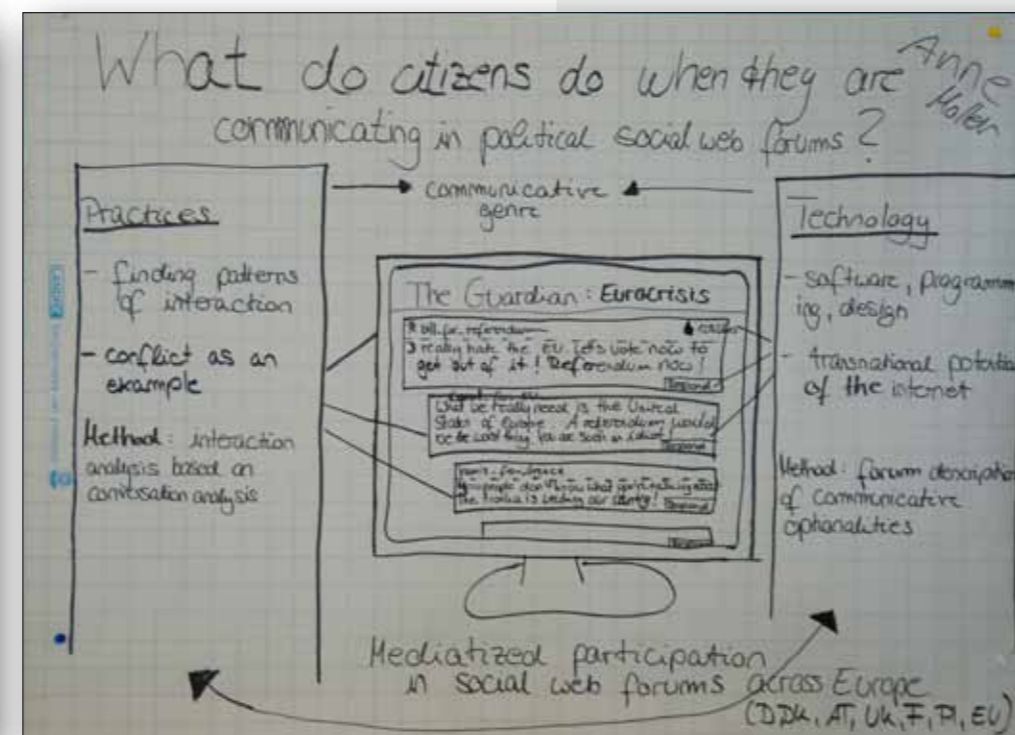 What do citizens do when they are
communicating in political social web forums?
Anne
communicative
genre
Practices
- finding patterns
of interaction
- conflict as an
example
Method: interaction
analysis based on
conversation analysis
The Guardian: Eurocrisis
bill_for_referendum
I really hate the EU. Let's vote now to
get out of it! Referendum now!
Respond
What we really need is the United
States of Europe. A referendum would
be the
Respond
people don't know what you're talking about
The is our country!
Respond
Technology
- software, programm
ing, design
- transnational potentia
of the internet
Method: forum description
of communicative
optionalities
Mediatized participation
in social web forums across Europe
(D, DK, AT, UK, F, PL, EU)